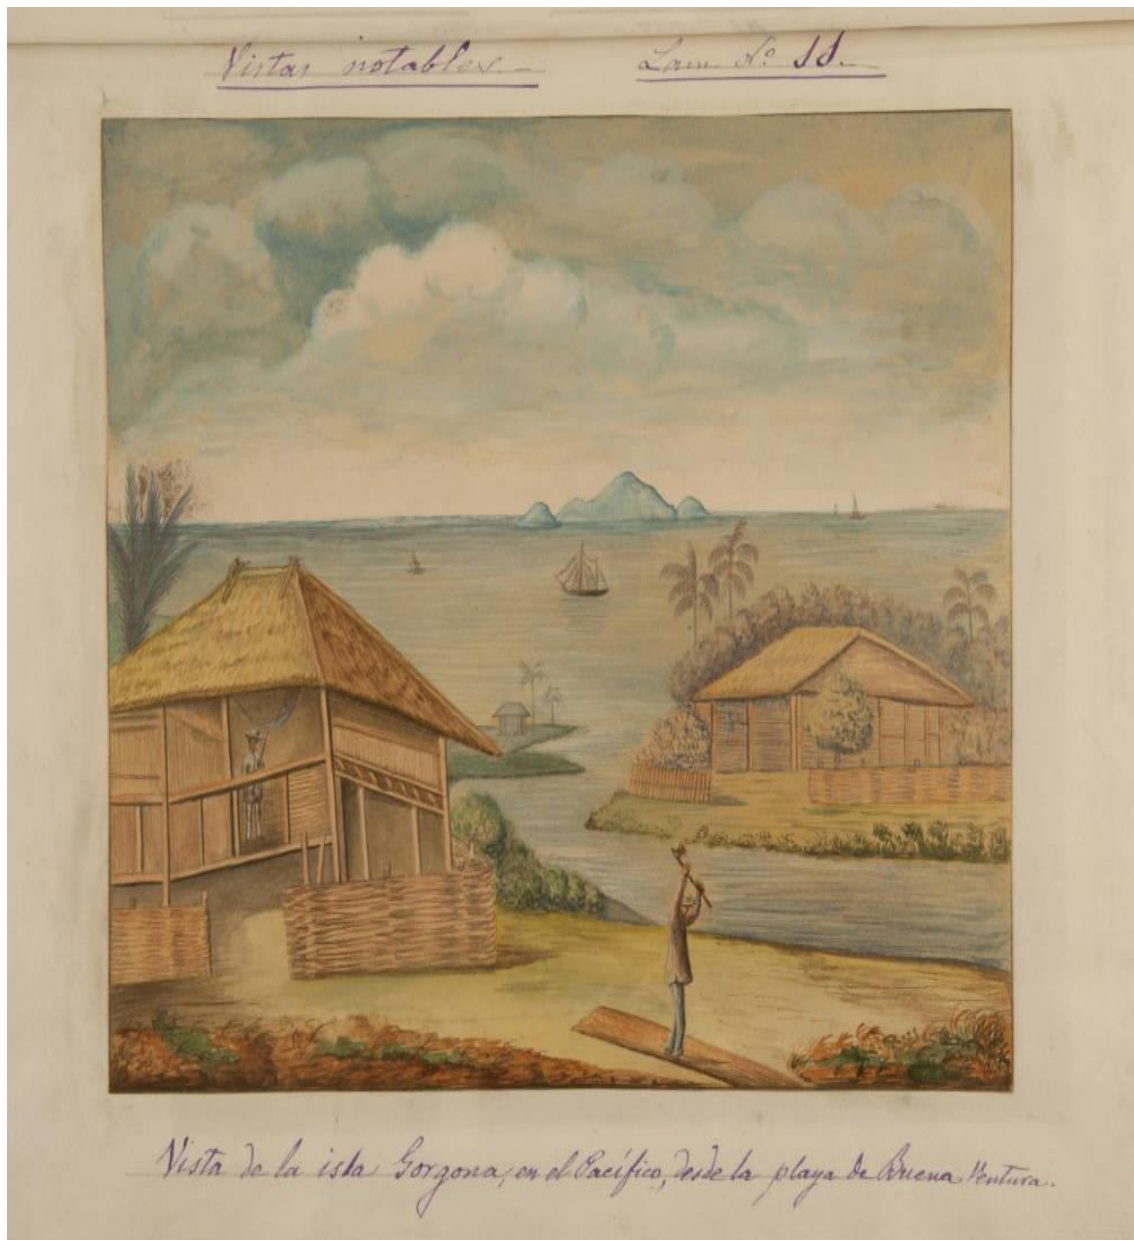 Vistas notables.
Lam. Nº 11.
Vista de la isla Gorgona, en el Pacífico, desde la playa de Buena Ventura.